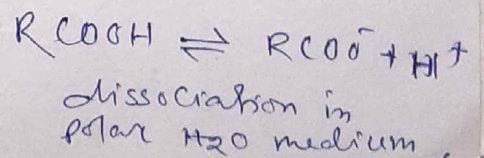 RCOOH ⇌ RCOO⁻ + H⁺
dissociation in
polar H2O medium.